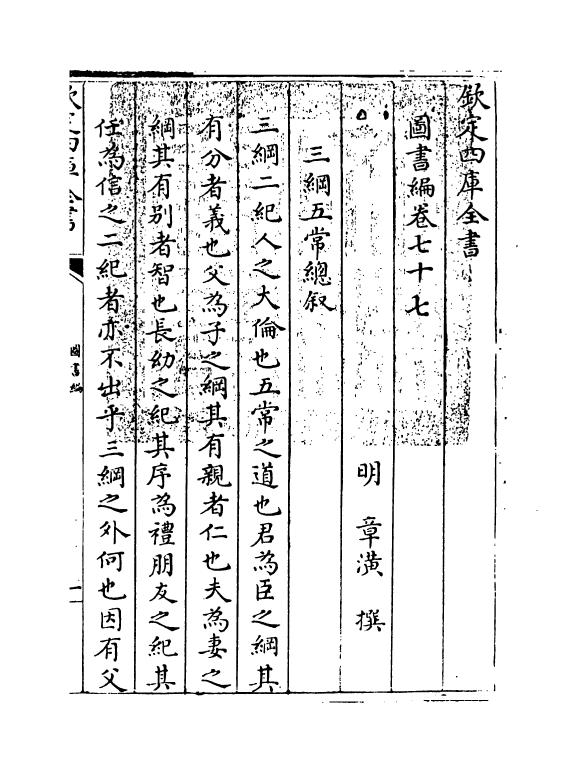 欽定四庫全書
圖書編卷七十七
明 章潢 撰
三綱五常總叙
三綱二紀人之大倫也五常之道也君為臣之綱其
有分者義也父為子之綱其有親者仁也夫為妻之
綱其有别者智也長幼之紀其序為禮朋友之紀其
任為信之二紀者亦不出乎三綱之外何也因有父
欽定四庫全書
圖書編
一